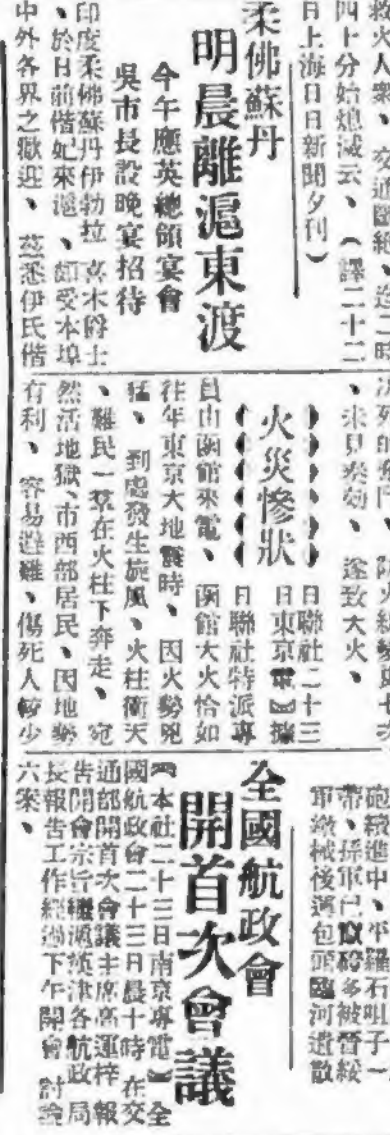 救火人衆、交通斷絕、迄二時
四十分始熄滅云、(譯二十二
日上海日日新聞夕刊)
柔佛蘇丹
明晨離滬東渡
今午應英總領宴會
吳市長設晚宴招待
印度柔佛蘇丹伊勃拉喜木爵士
、於日前偕妃來滬、頗受本埠
中外各界之歡迎、茲悉伊氏偕
、未見奏効、遂致大火、
火災慘狀
日聯社二十三
日東京電】據
日聯社特派專
員由函館來電、函館大火恰如
往年東京大地震時、因火勢兇
猛、到處發生旋風、火柱衝天
、難民一羣在火柱下奔走、宛
然活地獄、市西部居民、因地勢
有利、容易避難、傷死人較少
砲續進中、平羅石咀子一
帶、孫軍已潰多被晉綏
軍繳械後過包頭臨河遣散
全國航政會
開首次會議
【本社二十三日南京專電】全
國航政會二十三日晨十時在交
通部開首次會議主席高運梓報
告開會宗旨繼滬漢津各航政局
長報告工作經過下午開會討論
六案、